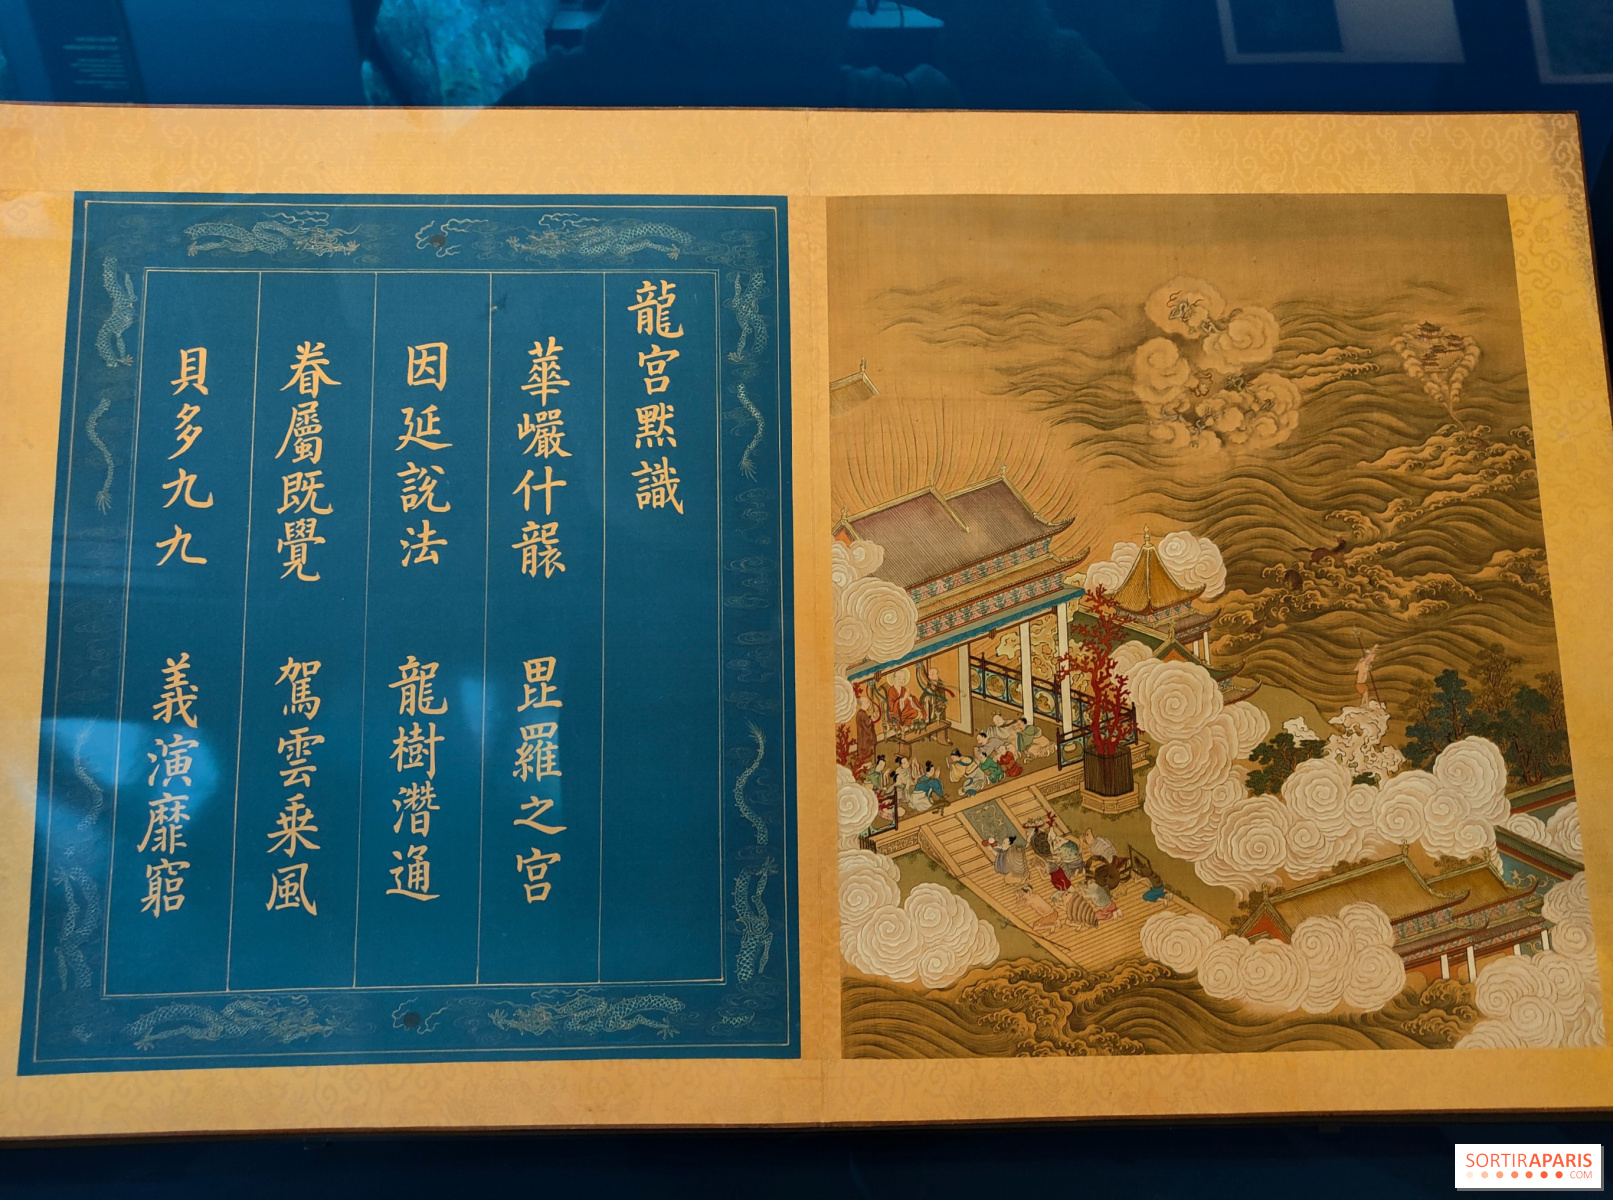 龍宮默識
華巖什襲 毘羅之宮
因延說法 龍樹潛通
眷屬既覺 駕雲乗風
貝多九九 義演靡窮
SORTIRAPARIS
.COM